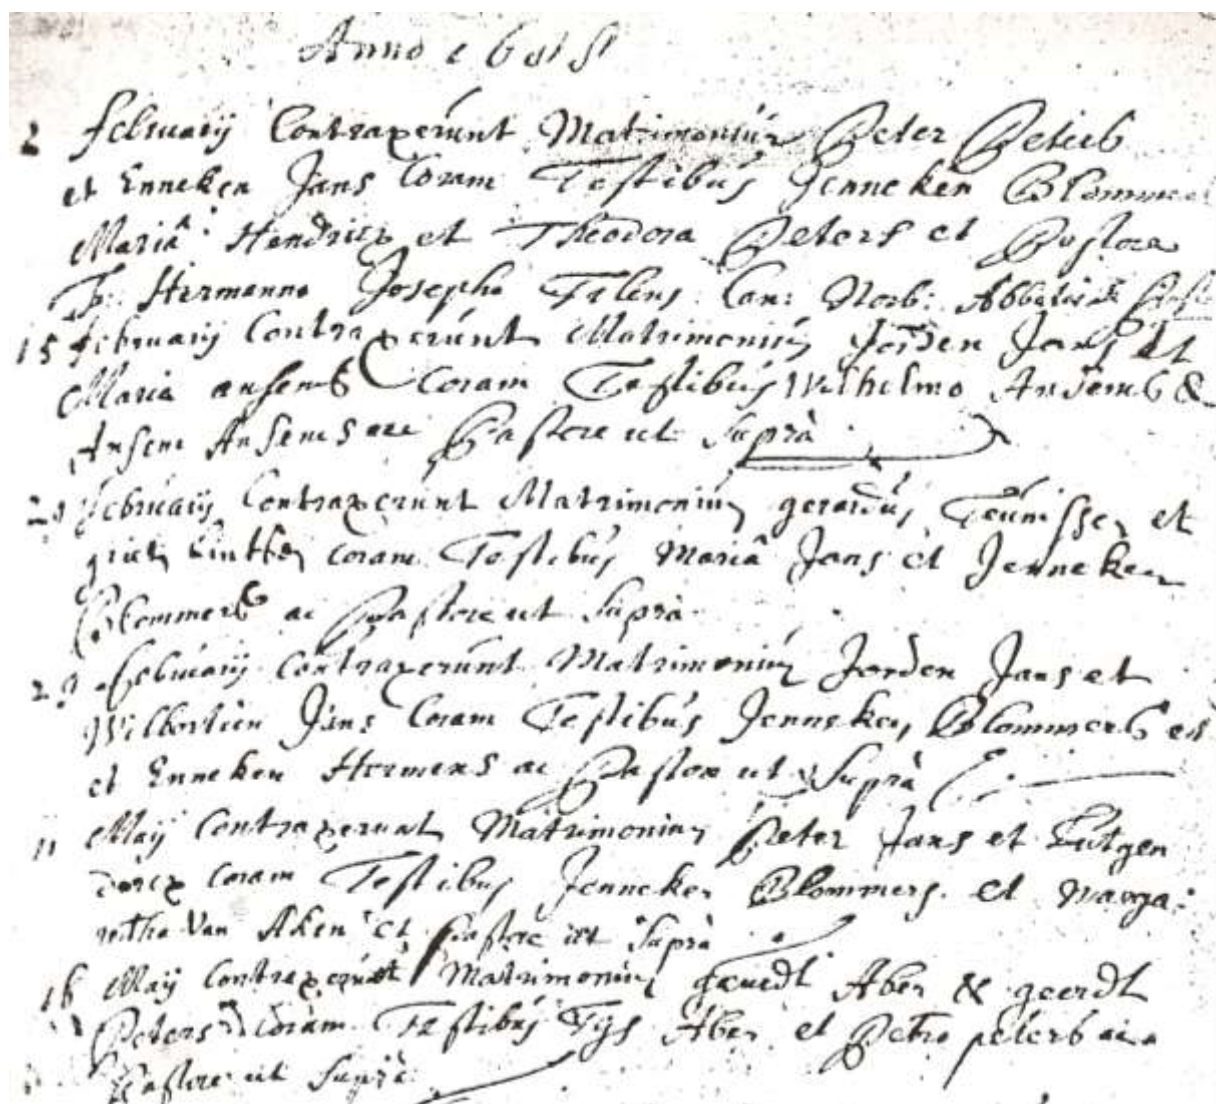 Anno
2 februarij Contraxerunt Matrimoniū Peter Peters
et Enneken Jans Coram Testibus Jenneken Blommer
Mariâ Hendricx et Theodora Peters et Pastore
Hermanno Josepho Can: Norb:
15 februarij Contraxerunt Matrimoniū Jorden Jans et
Maria ansems Coram Testibus Wilhelmo Ansems &
Ansem Ansems ac Pastore ut Suprà
februarij Contraxerunt Matrimoniū gerardus Teunissen et
griet coram Testibus Mariâ Jans et Jenneken
Blommers ac Pastore ut Suprà
februarij Contraxerunt Matrimoniū Jorden Jans et
Wilbortien Jans Coram Testibus Jenneken Blommers
et Enneken Hermens ac Pastore ut Suprà
11 Maij Contraxerunt Matrimoniū Peter Jans et
dercx Coram Testibus Jenneken Blommers et Marga:
retha Van Aken et Pastore ut Suprà
16 Maij Contraxerunt Matrimoniū Aben & geerdt
Peters Coram Testibus Tijs Aben et Petro peters
Pastore ut Suprà